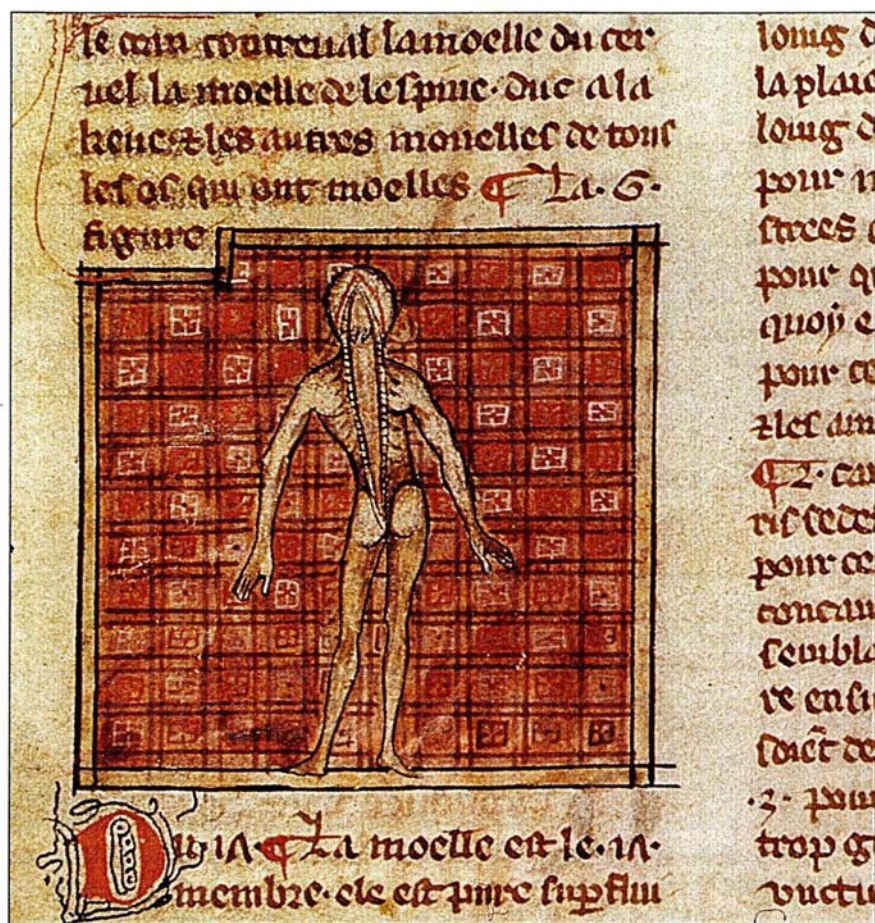 le cran contreual la moelle du cer
uel la moelle de lespine duc a la
keue ⁊ les autres mouelles de tous
les os qui ont moelles ¶ La .6.
figure
¶ La moelle est le .ia.
membre. ele est pure supfluu
louig d
la plaie
louig d
pour n
strees
pour qu
quoy e
pour ce
⁊ les am
pour ce
concau
sembla
re ensu
.3. pour
trop g